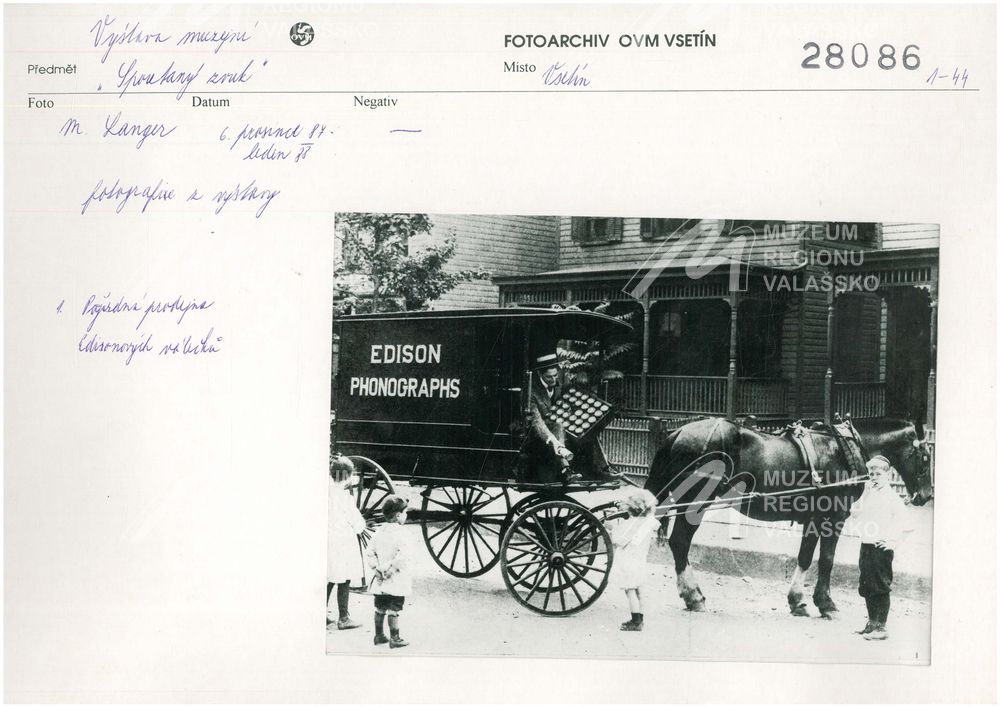 Výstava muzejní
OVM
FOTOARCHIV OVM VSETÍN
28086
Předmět "Spoutaný zvuk"
Místo Vsetín
1-44
Foto Datum Negativ
M. Langer 6. prosinec 87 - —
leden 88
fotografie z výstavy
1. Pojízdná prodejna
Edisonových válečků
EDISON
PHONOGRAPHS
MUZEUM
REGIONU
VALAŠSKO
MUZEUM
REGIONU
VALAŠSKO
1